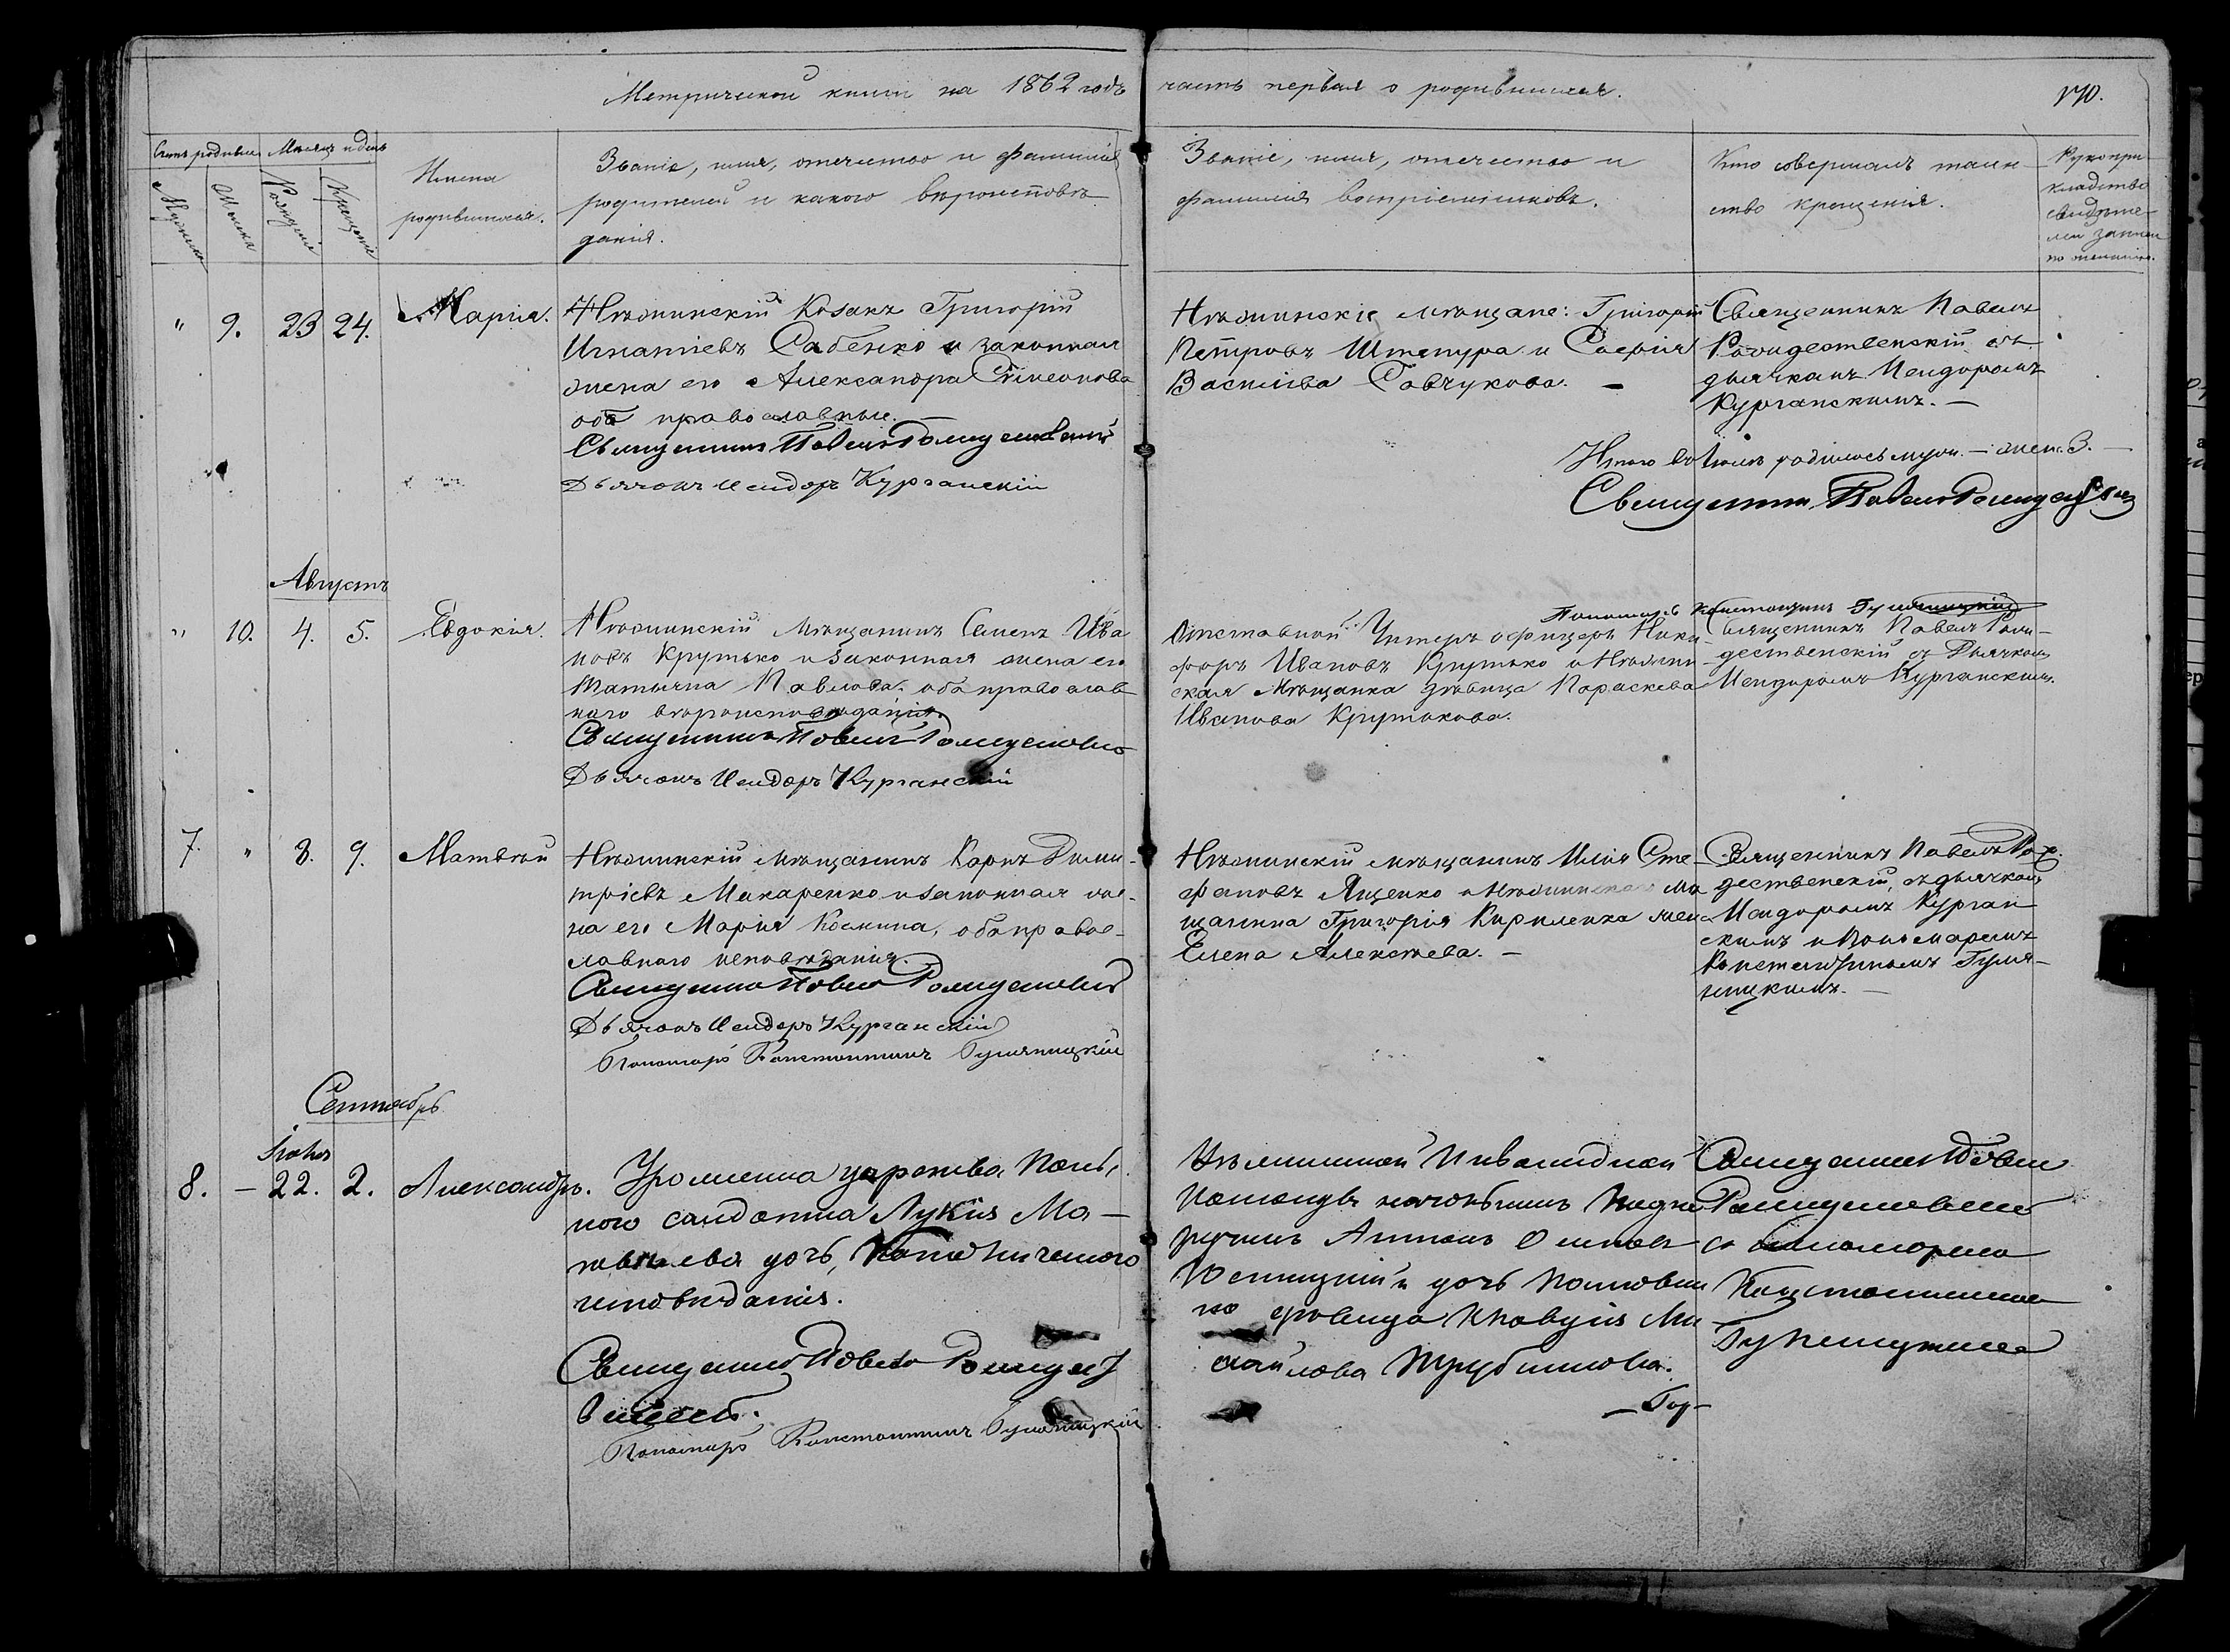 Метрической книги на 1862 годъ
часть первая о родившихся.
170.
Счетъ родивш.
Мужеска
Женска
Мѣсяцъ и день
Рожденія
Крещенія
Имена
родившихся.
Званіе, имя, отчество и фамилія
родителей и какого вѣроисповѣ-
данія.
Званіе, имя, отчество и
фамилія воспріемниковъ.
Кто совершалъ таин-
ство крещенія.
Рукопри-
кладство
свидѣте-
лей записи
по желанію.
" 9. 23 24. Марія.
Нѣжинскій Козакъ Григорій
Игнатіевъ Сабенко и законная
жена его Александра Симеонова
оба православные. —
Священникъ Павелъ Рождественскій
Дьячокъ Исидоръ Курганскій
Нѣжинскіе мѣщане: Григорій
Петровъ Штепура и Софія
Васильева Савчукова. —
Священникъ Павелъ
Рождественскій съ
дьячкомъ Исидоромъ
Курганскимъ. —
Итого въ Іюлѣ родилось муж. — жен. 3. —
Священникъ Павелъ Рождественскій
Августъ
" 10. 4. 5. Евдокія.
Нѣжинскій мѣщанинъ Семенъ Ива
новъ Крутько и законная жена его
Татьяна Павлова. оба православ
наго вѣроисповѣданія.
Священникъ Павелъ Рождественскій
Дьячокъ Исидоръ Курганскій
Отставной Унтеръ офицеръ Ники-
форъ Ивановъ Крутько и Нѣжин
ская Мѣщанка дѣвица Параскева
Иванова Крутькова.
Пономарь Константинъ
Священникъ Павелъ Рож-
дественскій съ Дьячкомъ
Исидоромъ Курганскимъ.
7. " 8. 9. Матвѣй
Нѣжинскій мѣщанинъ Карпъ Дими-
тріевъ Макаренко и законная же-
на его Марія Космина, оба правос-
лавнаго исповѣданія.
Священникъ Павелъ Рождественскій
Дьячокъ Исидоръ Курганскій
Пономарь Константинъ Гумяницкій
Нѣжинскій мѣщанинъ Илія Сте-
фановъ Яценко и Нѣжинскаго мѣ
щанина Григорія Кириленка жена
Елена Алексѣева. —
Священникъ Павелъ Рож
дественскій, съ дьячкомъ
Исидоромъ Курган-
скимъ и Пономаремъ
Константиномъ Гумя-
ницкимъ. —
Сентябрь
8. — 22. 2. Александръ.
Уроженка царства Поль-
наго солдатка Лукія Ма-
дочь, Католическаго
исповѣданія.
Священникъ Павелъ Рождест
Пономарь Константинъ Гумяницкій
Нѣжинской Инвалидной
Команды
Антонъ Осиповъ
и дочь
дѣвица Клавдія Ми-
хайлова Трубникова.
Священникъ Павелъ
Рождественскій
съ пономаремъ
Константиномъ